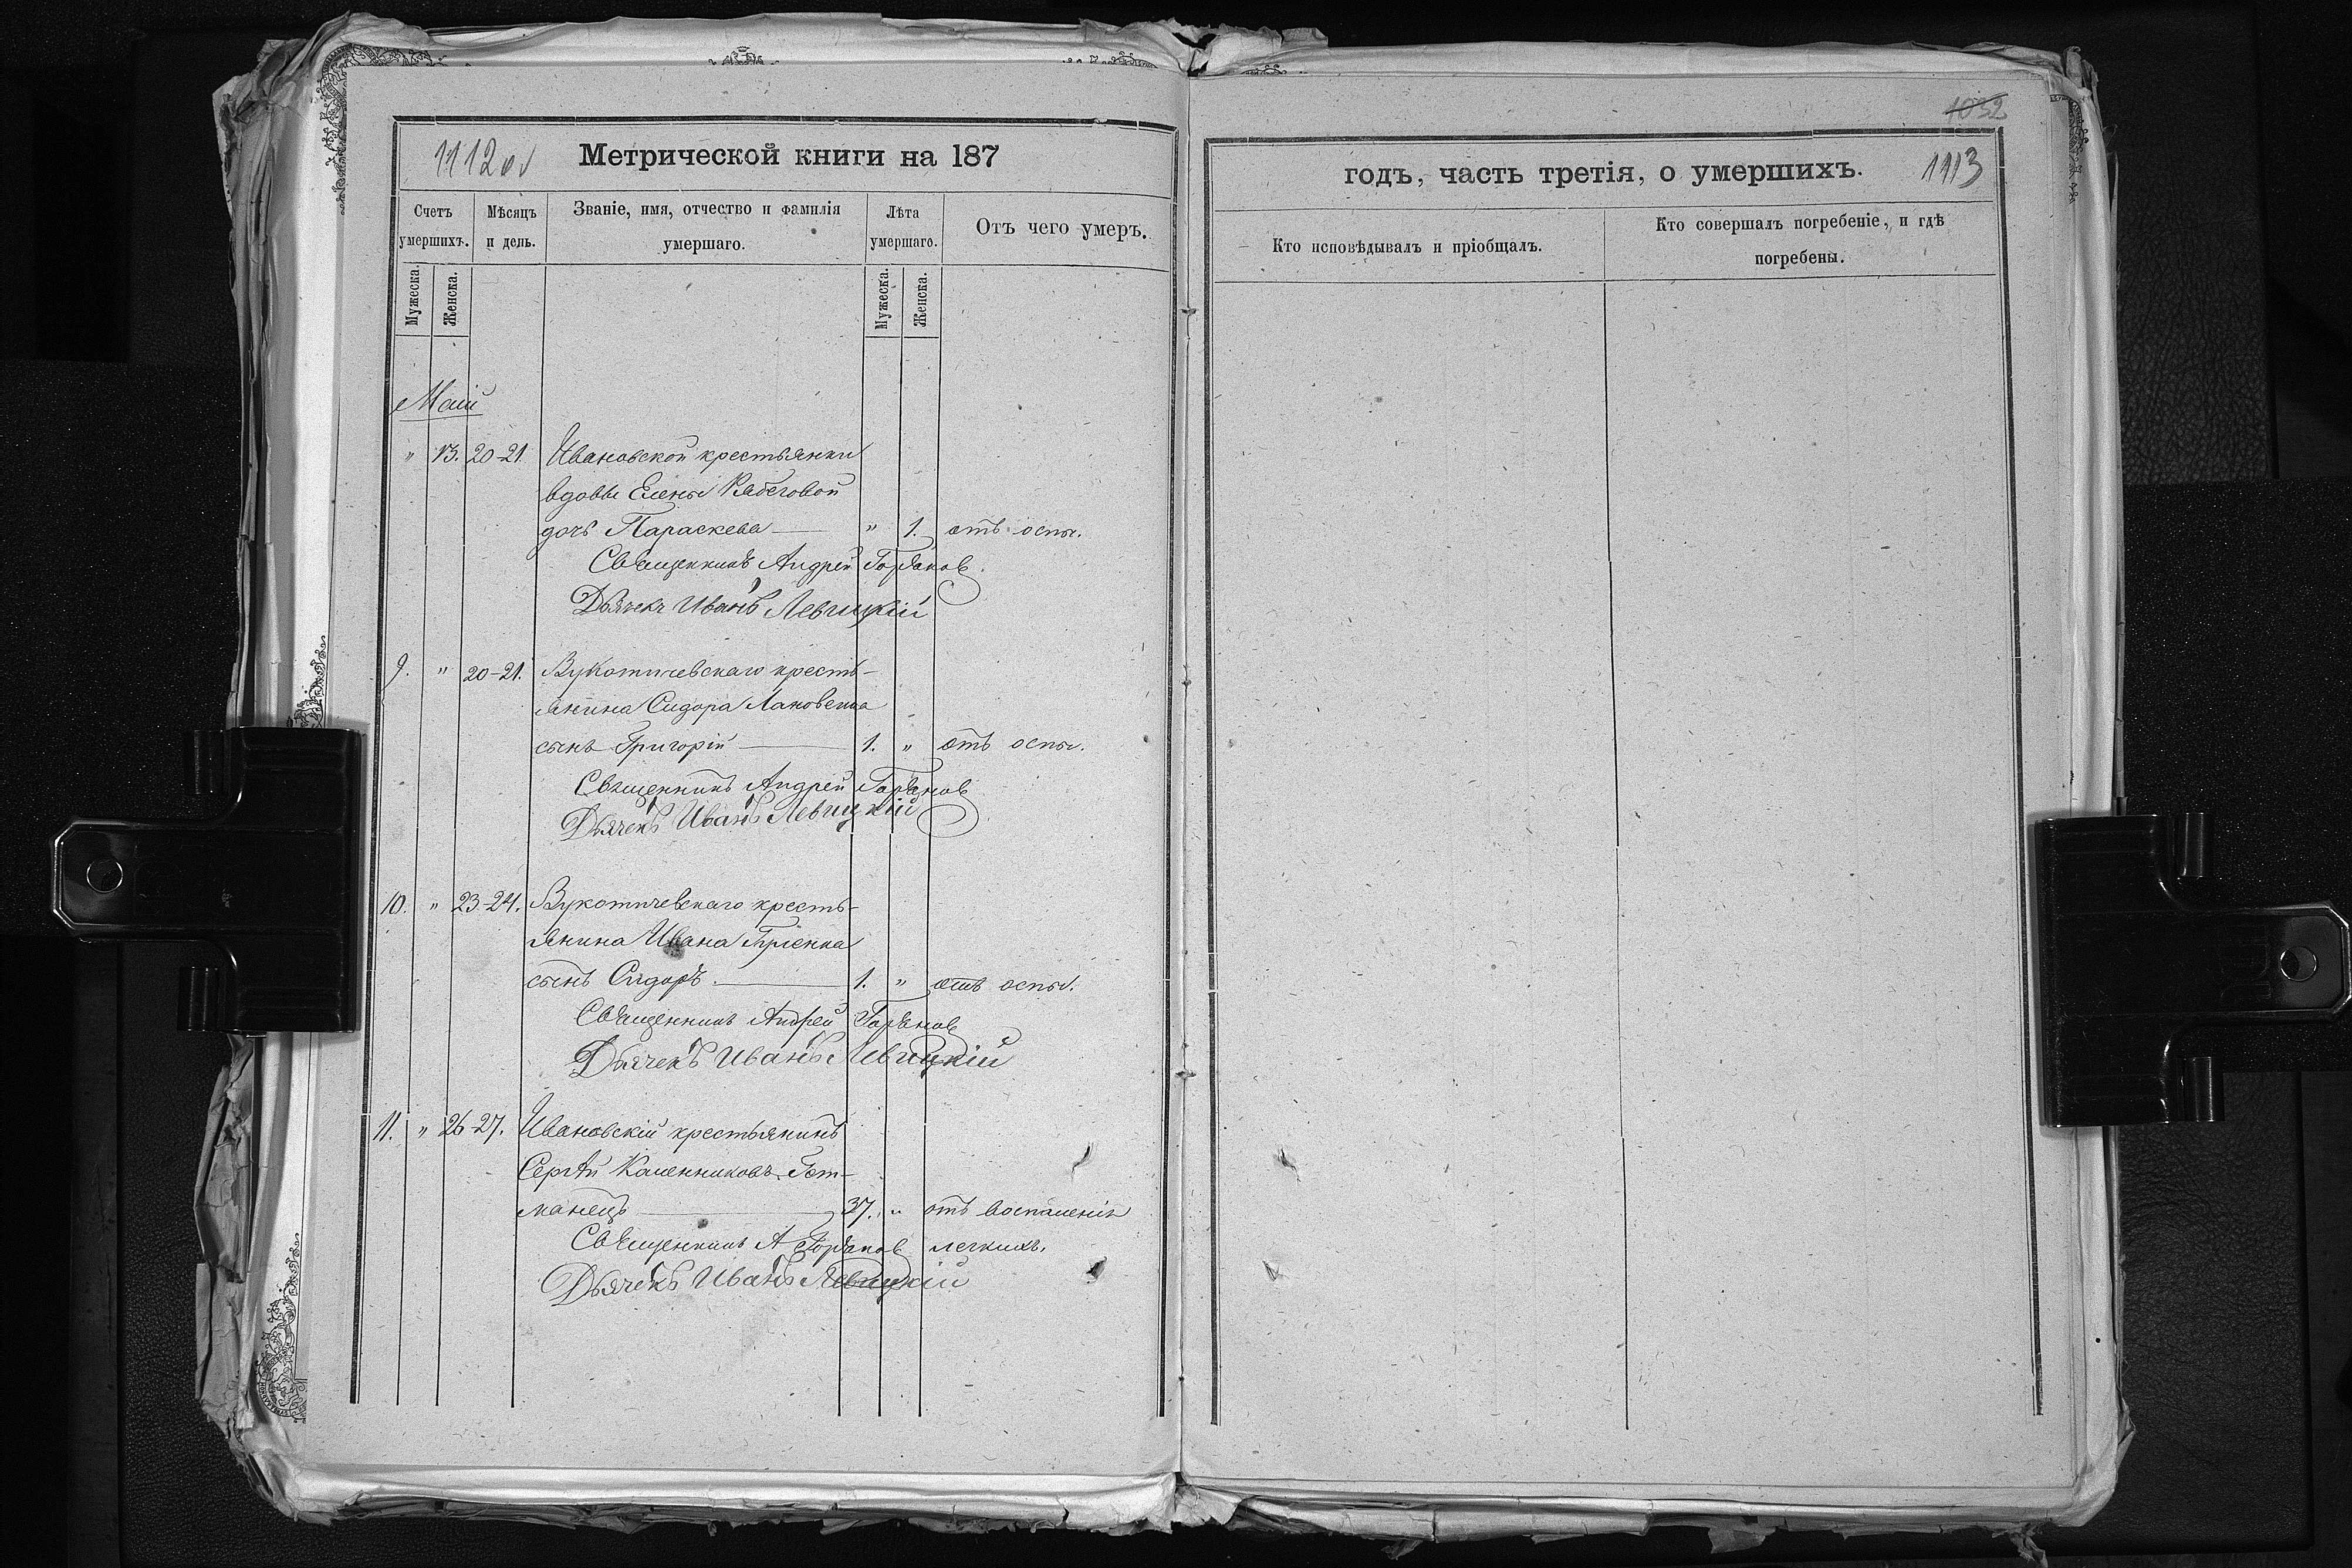 1112об Метрической книги на 187
Счетъ умершихъ. Мѣсяцъ и день. Званіе, имя, отчество и фамилія умершаго. Лѣта умершаго. Отъ чего умеръ.
Мужеска. Женска. Мужеска. Женска.
Маій
" 13. 20-21. Ивановской крестьянки
вдовы Елены
дочь Параскева " 1. отъ оспы.
Священникъ Андрей Горбановъ
Дьячекъ Иванъ Левицкій
9. " 20-21. Вукотичевскаго кресть-
янина Сидора
сынъ Григорій 1. " отъ оспы.
Священникъ Андрей Горбановъ
Дьячекъ Иванъ Левицкій
10. " 23-24. Вукотичевскаго кресть-
янина Ивана
сынъ Сидоръ 1. " отъ оспы.
Священникъ Андрей Горбановъ
Дьячекъ Иванъ Левицкій
11. " 26-27. Ивановскій крестьянинъ
Сергѣй Калениковъ Гет-
манецъ 37. " отъ воспаленія
Священникъ А Горбановъ легкихъ.
Дьячекъ Иванъ Левицкій
1032
годъ, часть третія, о умершихъ. 1113
Кто исповѣдывалъ и пріобщалъ. Кто совершалъ погребеніе, и гдѣ
погребены.